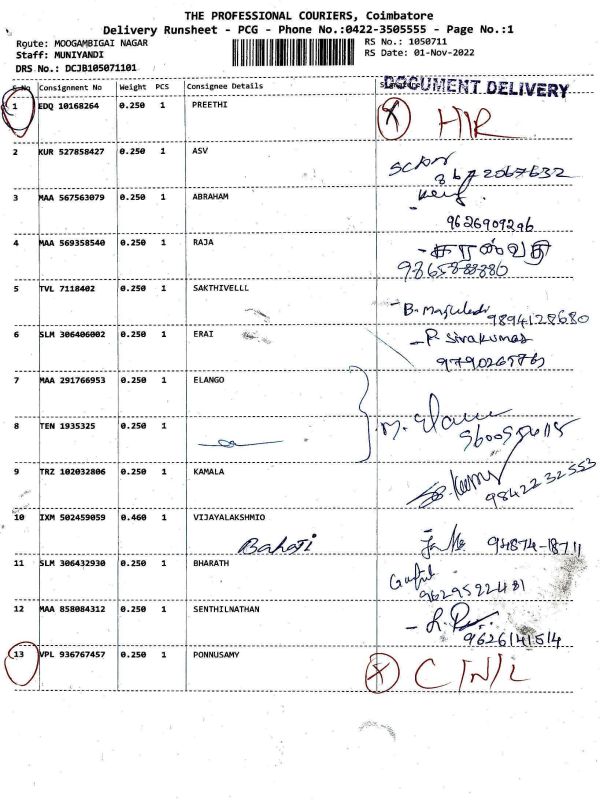 THE PROFESSIONAL COURIERS, Coimbatore
Delivery Runsheet - PCG - Phone No.:0422-3505555 - Page No.:1
Route: MOOGAMBIGAI NAGAR
RS No.: 1050711
Staff: MUNIYANDI
RS Date: 01-Nov-2022
DRS No.: DCJB105071101
DOCUMENT DELIVERY
S No Consignment No Weight PCS Consignee Details
1 EDQ 10168264 0.250 1 PREETHI X
2 KUR 527858427 0.250 1 ASV
3 MAA 567563079 0.250 1 ABRAHAM
9626909296
4 MAA 569358540 0.250 1 RAJA
5 TVL 7118402 0.250 1 SAKTHIVELLL
9894128680
6 SLM 306406002 0.250 1 ERAI - P. Sivakumar
9790265763
7 MAA 291766953 0.250 1 ELANGO
8 TEN 1935325 0.250 1
9 TRZ 102032806 0.250 1 KAMALA
9842232553
10 IXM 502459059 0.460 1 VIJAYALAKSHMIO
94874-18711
11 SLM 306432930 0.250 1 BHARATH
9629522481
12 MAA 858084312 0.250 1 SENTHILNATHAN
9626141514
13 VPL 936767457 0.250 1 PONNUSAMY X C/N/L